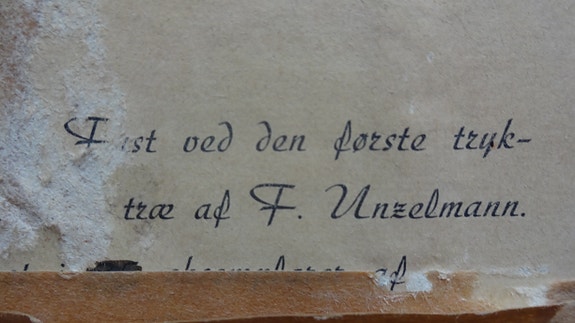 ved den første tryk-
træ af F. Unzelmann.
af